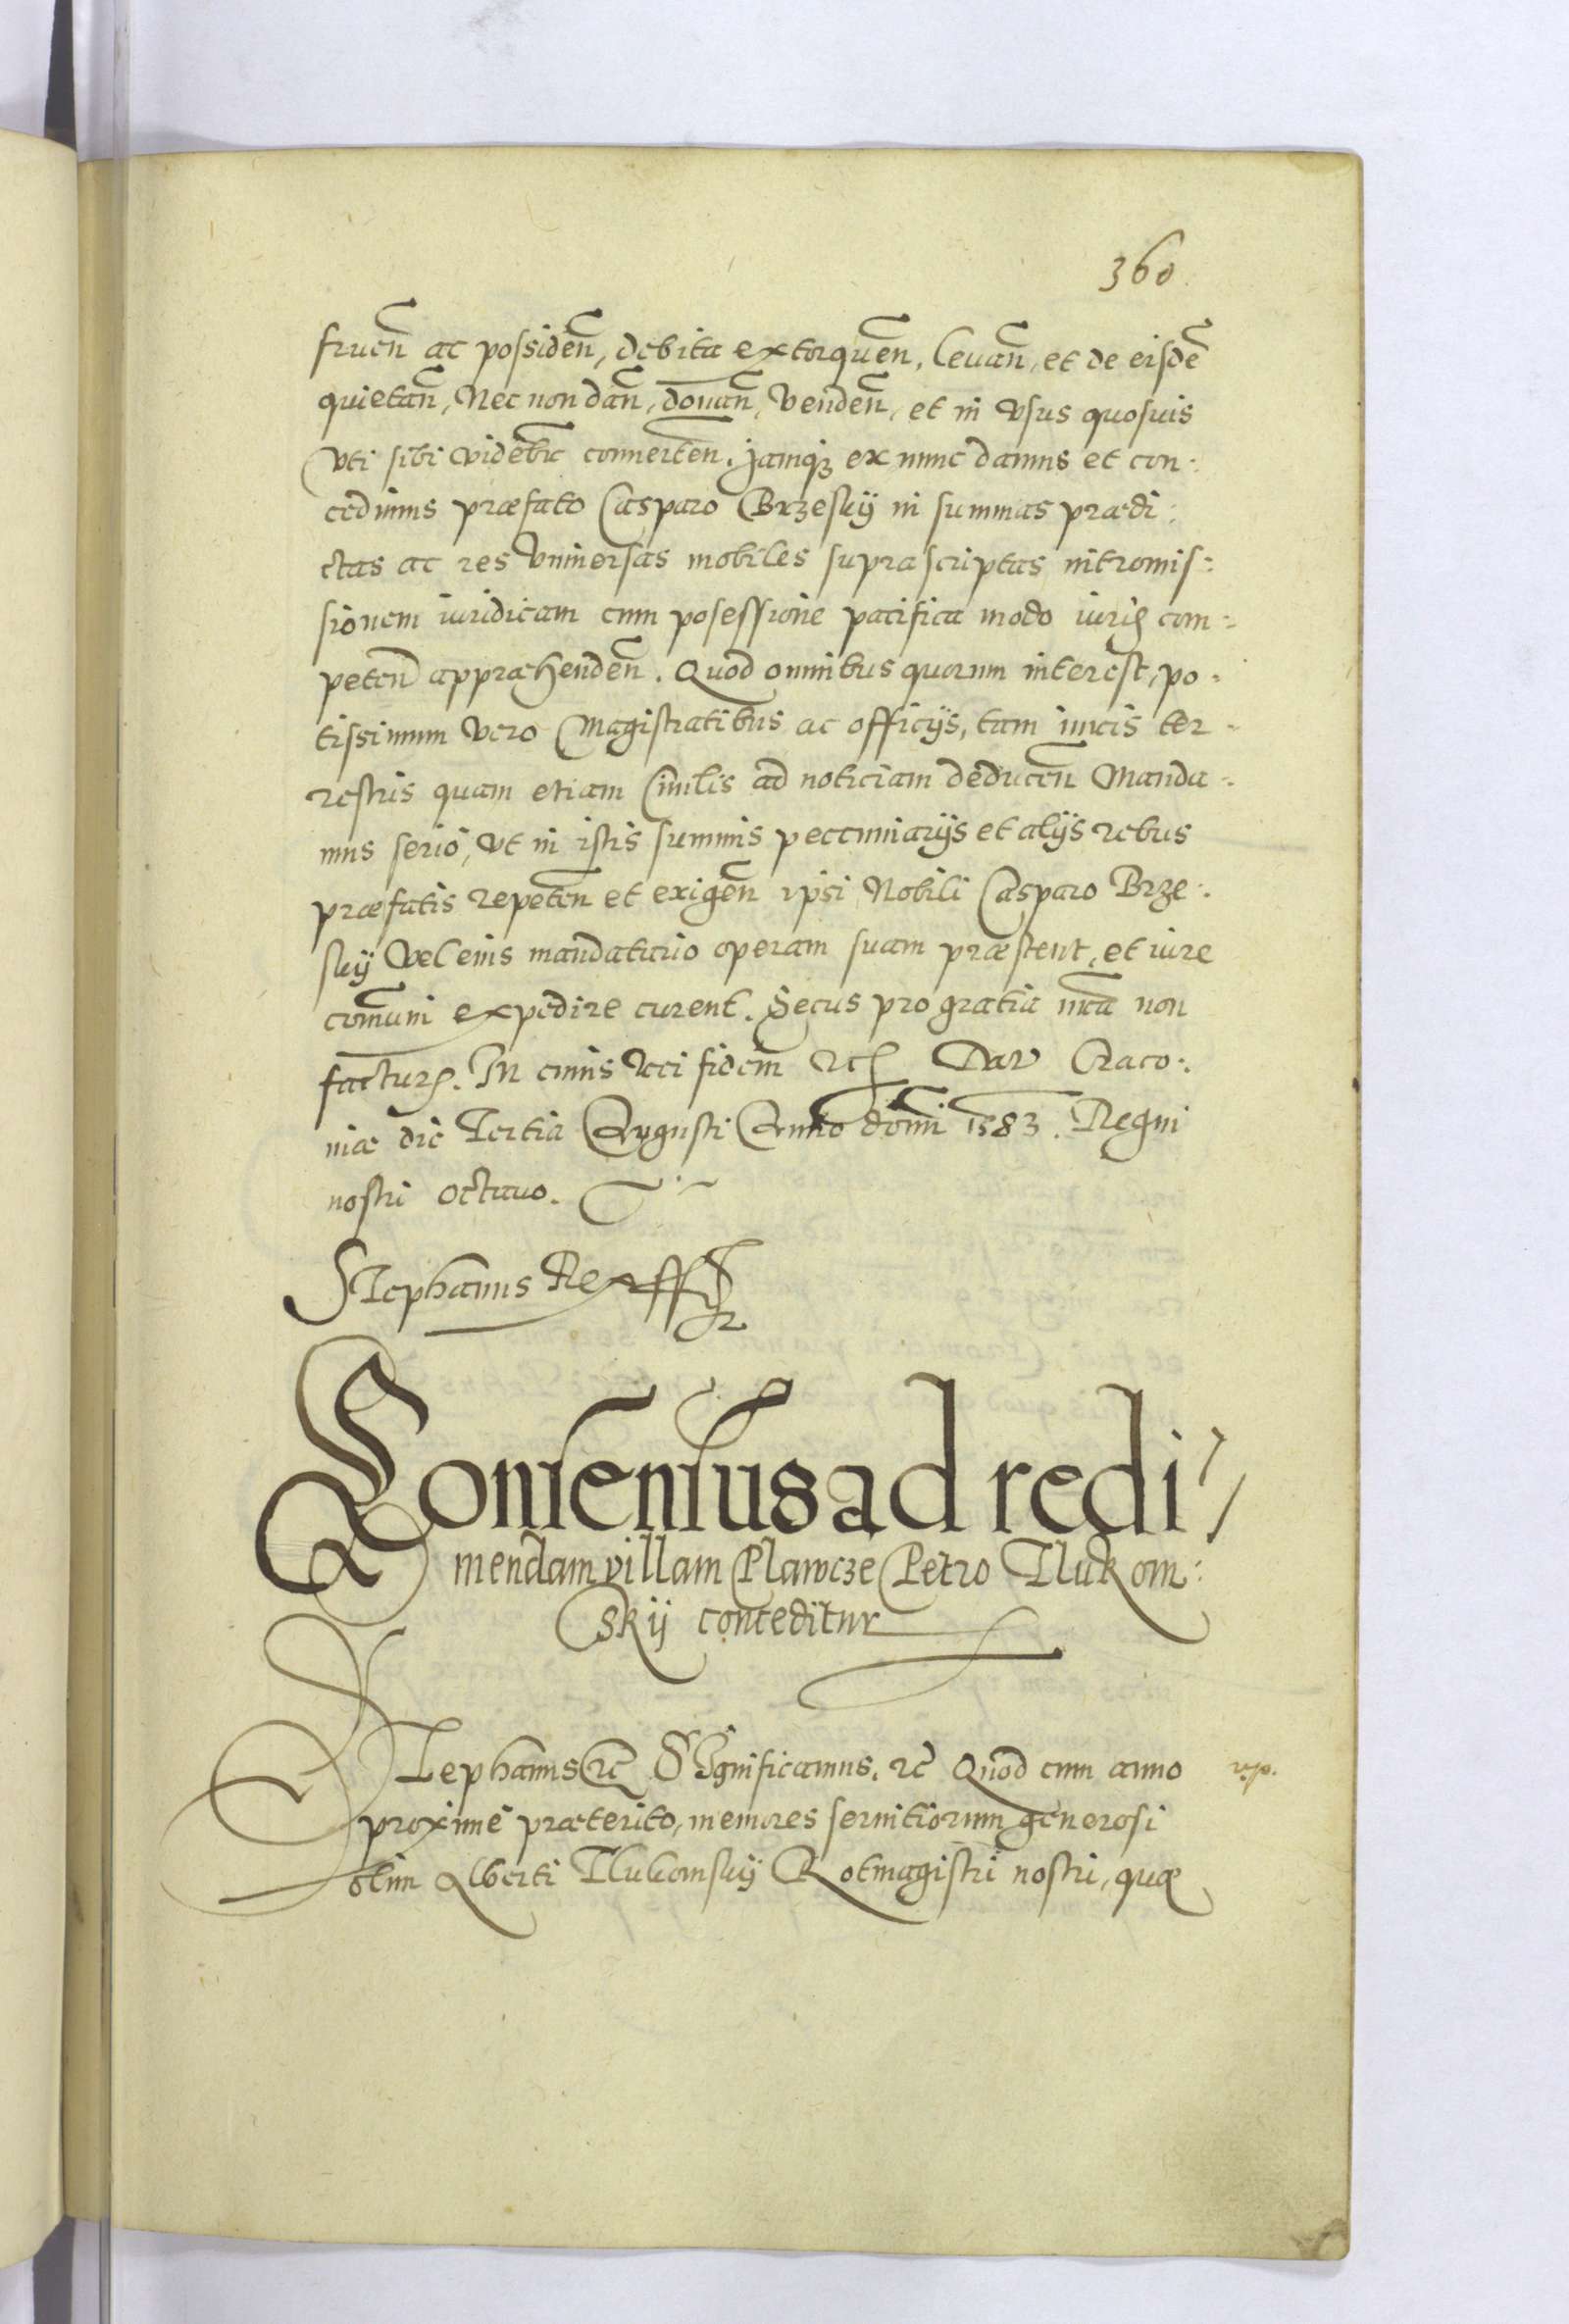 360
fruen̄ ac possiden̄, debita extorquen̄, levan̄, et de eisdē
quietan̄, Nec non dan̄, donan̄, venden̄, et in vsus quosuis
vti sibi videbit̄ conuerten̄. Jamq3 ex nunc damus et con:
cedimus præfato Casparo Brzesky in summas prædi:
ctas ac res vniuersas mobiles suprascriptas intromis:
sionem iuridicam cum posessione pacifica modo iuris com:
peten̄ appræhenden̄. Quod omnibus quorum interest, po:
tissimum vero Magistratibus ac officijs, tam iuris ter:
restris quam etiam Ciuilis ad noticiam deducen̄ Manda:
mus serio, vt in istis summis peccuniarijs et alijs rebus
præfatis repeten̄ et exigen̄ ipsi Nobili Casparo Brze:
sky vel eius mandatario operam suam præstent, et iure
com̄uni expedire curent. Secus pro gratia n̄ra non
factur. In cuius rei fidem etc Dat Craco:
niæ die Tertia Augusti Anno dom̄i 1583. Regni
nostri octauo.
Stephanus Rex ss
Consensus ad redi
mendam villam Plawcze Petro Tlukom:
skij conceditur
Stephanus etc Significamus. etc Quod cum anno
proxime præterito, memores seruitiorum generosi
olim Alberti Tlukomsky Rotmagistri nostri, quæ